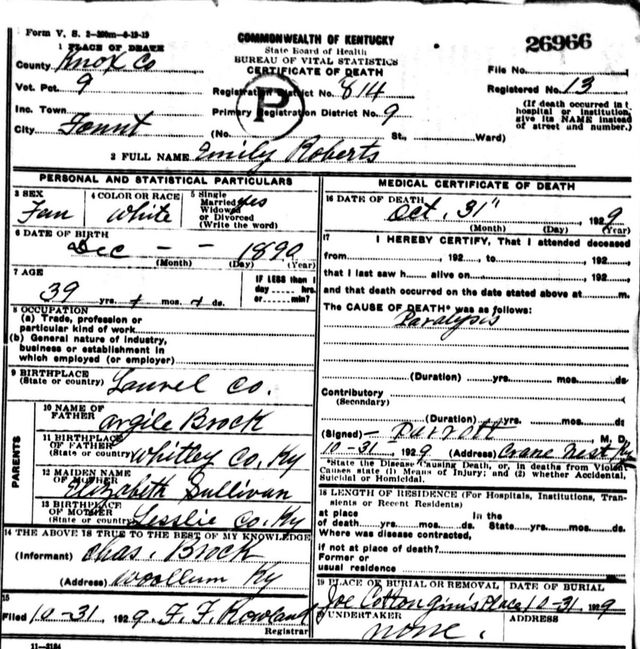 Form V. S. 2-200m-8-19-19
COMMONWEALTH OF KENTUCKY
State Board of Health
BUREAU OF VITAL STATISTICS
CERTIFICATE OF DEATH
26966
1 PLACE OF DEATH
County Knox Co
Vot. Pct. 9
Inc. Town
City
Registration District No. 814
Primary Registration District No. 9
P
(No. St., Ward)
File No.
Registered No. 13
(If death occurred in t
hospital or institution,
give its NAME instead
of street and number.)
2 FULL NAME Emily Roberts
PERSONAL AND STATISTICAL PARTICULARS
3 SEX
4 COLOR OR RACE White
5 Single
Married yes
Widowed
or Divorced
(Write the word)
6 DATE OF BIRTH
Dec - - 1890
(Month) (Day) (Year)
7 AGE
39 yrs. mos. ds.
IF LESS than 1
day hrs.
or min?
8 OCCUPATION
(a) Trade, profession or
particular kind of work
(b) General nature of industry,
business or establishment in
which employed (or employer)
9 BIRTHPLACE
(State or country) Laurel Co.
PARENTS
10 NAME OF
FATHER Argile Brock
11 BIRTHPLACE
OF FATHER
(State or country) Whitley Co. Ky
12 MAIDEN NAME
OF MOTHER Elizabeth Sullivan
13 BIRTHPLACE
OF MOTHER
(State or country) Lesslie Co. Ky
14 THE ABOVE IS TRUE TO THE BEST OF MY KNOWLEDGE
(Informant) Chas. Brock
(Address) Woollum Ky
15
Filed 10-31 1929 F. F. Rowland
Registrar
11-3184
MEDICAL CERTIFICATE OF DEATH
16 DATE OF DEATH
Oct. 31" 1929
(Month) (Day) (Year)
17 I HEREBY CERTIFY, That I attended deceased
from , 192 , to , 192 ,
that I last saw h alive on , 192 ,
and that death occurred on the date stated above at m.
The CAUSE OF DEATH* was as follows:
Paralysis
(Duration) yrs. mos. ds.
Contributory
(Secondary)
(Duration) yrs. mos. ds.
(Signed) - Parrott M. D.
10-31 1929 (Address) Crane Nest Ky
*State the Disease Causing Death, or, in deaths from Violent
Causes state (1) Means of Injury; and (2) whether Accidental,
Suicidal or Homicidal.
18 LENGTH OF RESIDENCE (For Hospitals, Institutions, Tran-
sients or Recent Residents)
at place In the
of death yrs. mos. ds. State yrs. mos. ds.
Where was disease contracted,
if not at place of death?
Former or
usual residence
19 PLACE OF BURIAL OR REMOVAL DATE OF BURIAL
Joe Cottongim's Place 10-31 1929
UNDERTAKER ADDRESS
none.